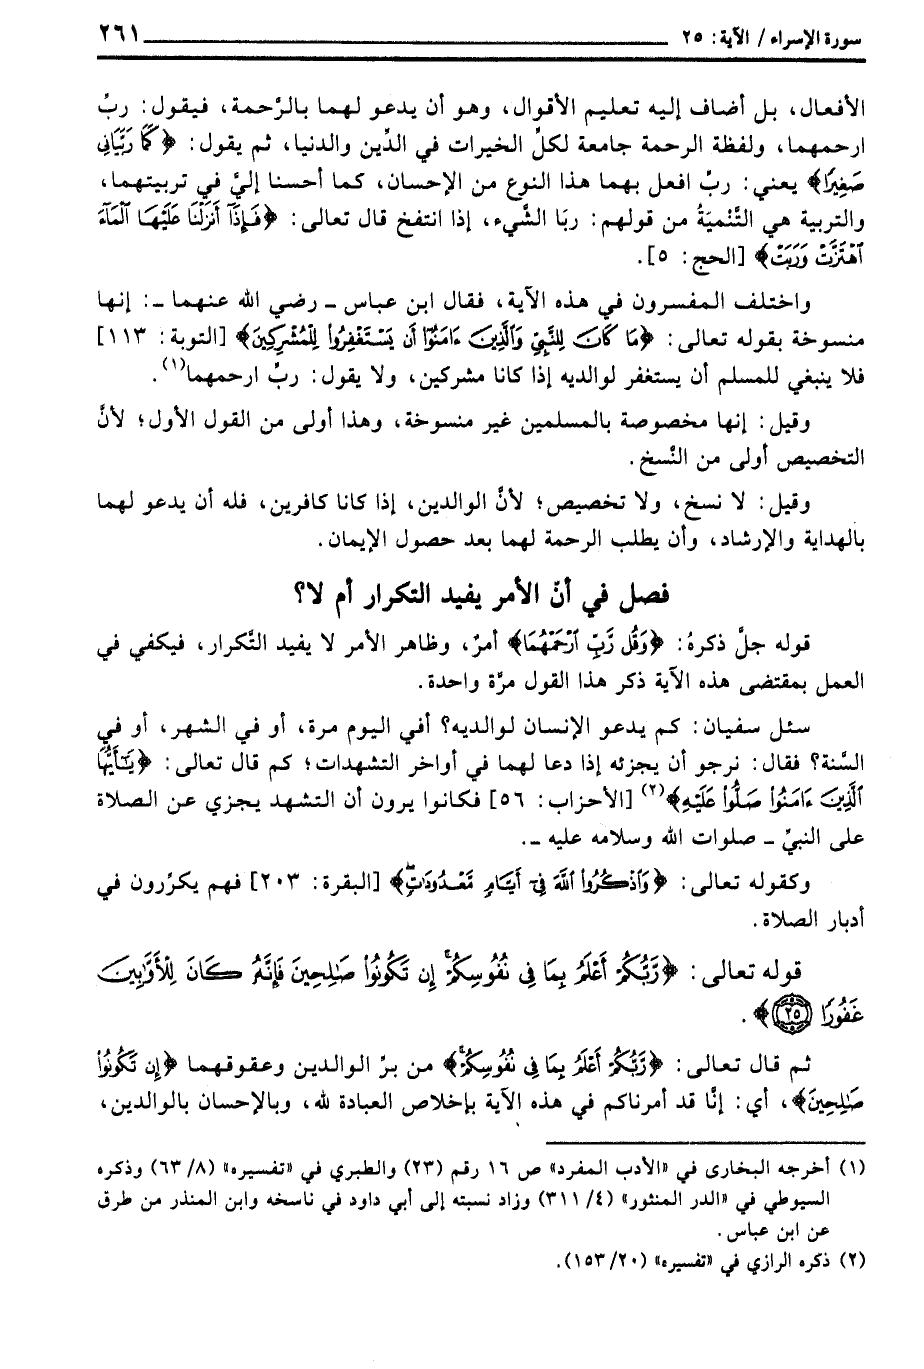 سورة الإسراء / الآية: ٢٥ ــــــ ٢٦١
الأفعال، بل أضاف إليه تعليم الأقوال، وهو أن يدعو لهما بالرَّحمة، فيقول: ربِّ
ارحمهما، ولفظة الرحمة جامعة لكلِّ الخيرات في الدِّين والدنيا، ثم يقول: ﴿كَمَا رَبَّيَانِي
صَغِيرًا﴾ يعني: ربِّ افعل بهما هذا النوع من الإحسان، كما أحسنا إليَّ في تربيتهما،
والتربية هي التَّنْمِيَةُ من قولهم: ربَا الشَّيء، إذا انتفخ قال تعالى: ﴿فَإِذَآ أَنزَلْنَا عَلَيْهَا ٱلْمَآءَ
ٱهْتَزَّتْ وَرَبَتْ﴾ [الحج: ٥].
واختلف المفسرون في هذه الآية، فقال ابن عباس - رضي الله عنهما -: إنها
منسوخة بقوله تعالى: ﴿مَا كَانَ لِلنَّبِيِّ وَٱلَّذِينَ ءَامَنُوٓا۟ أَن يَسْتَغْفِرُوا۟ لِلْمُشْرِكِينَ﴾ [التوبة: ١١٣]
فلا ينبغي للمسلم أن يستغفر لوالديه إذا كانا مشركين، ولا يقول: ربِّ ارحمهما(١).
وقيل: إنها مخصوصة بالمسلمين غير منسوخة، وهذا أولى من القول الأول؛ لأنَّ
التخصيص أولى من النَّسخ.
وقيل: لا نسخ، ولا تخصيص؛ لأنَّ الوالدين، إذا كانا كافرين، فله أن يدعو لهما
بالهداية والإرشاد، وأن يطلب الرحمة لهما بعد حصول الإيمان.
فصل في أنّ الأمر يفيد التكرار أم لا؟
قوله جلَّ ذكرهُ: ﴿وَقُل رَّبِّ ٱرْحَمْهُمَا﴾ أمرٌ، وظاهر الأمر لا يفيد التَّكرار، فيكفي في
العمل بمقتضى هذه الآية ذكر هذا القول مرَّة واحدة.
سئل سفيان: كم يدعو الإنسان لوالديه؟ أفي اليوم مرة، أو في الشهر، أو في
السَّنة؟ فقال: نرجو أن يجزئه إذا دعا لهما في أواخر التشهدات؛ كم قال تعالى: ﴿يَٰٓأَيُّهَا
ٱلَّذِينَ ءَامَنُوا۟ صَلُّوا۟ عَلَيْهِ﴾(٢) [الأحزاب: ٥٦] فكانوا يرون أن التشهد يجزي عن الصلاة
على النبيِّ - صلوات الله وسلامه عليه -.
وكقوله تعالى: ﴿وَٱذْكُرُوا۟ ٱللَّهَ فِىٓ أَيَّامٍ مَّعْدُودَٰتٍ﴾ [البقرة: ٢٠٣] فهم يكرِّرون في
أدبار الصلاة.
قوله تعالى: ﴿رَّبُّكُمْ أَعْلَمُ بِمَا فِى نُفُوسِكُمْ إِن تَكُونُوا۟ صَٰلِحِينَ فَإِنَّهُۥ كَانَ لِلْأَوَّٰبِينَ
غَفُورًا ٢٥﴾.
ثم قال تعالى: ﴿رَّبُّكُمْ أَعْلَمُ بِمَا فِى نُفُوسِكُمْ﴾ من برِّ الوالدين وعقوقهما ﴿إِن تَكُونُوا۟
صَٰلِحِينَ﴾، أي: إنَّا قد أمرناكم في هذه الآية بإخلاص العبادة لله، وبالإحسان بالوالدين،
(١) أخرجه البخارى في «الأدب المفرد» ص ١٦ رقم (٢٣) والطبري في «تفسيره» (٨/ ٦٣) وذكره
السيوطي في «الدر المنثور» (٤/ ٣١١) وزاد نسبته إلى أبي داود في ناسخه وابن المنذر من طرق
عن ابن عباس.
(٢) ذكره الرازي في «تفسيره» (٢٠/ ١٥٣).